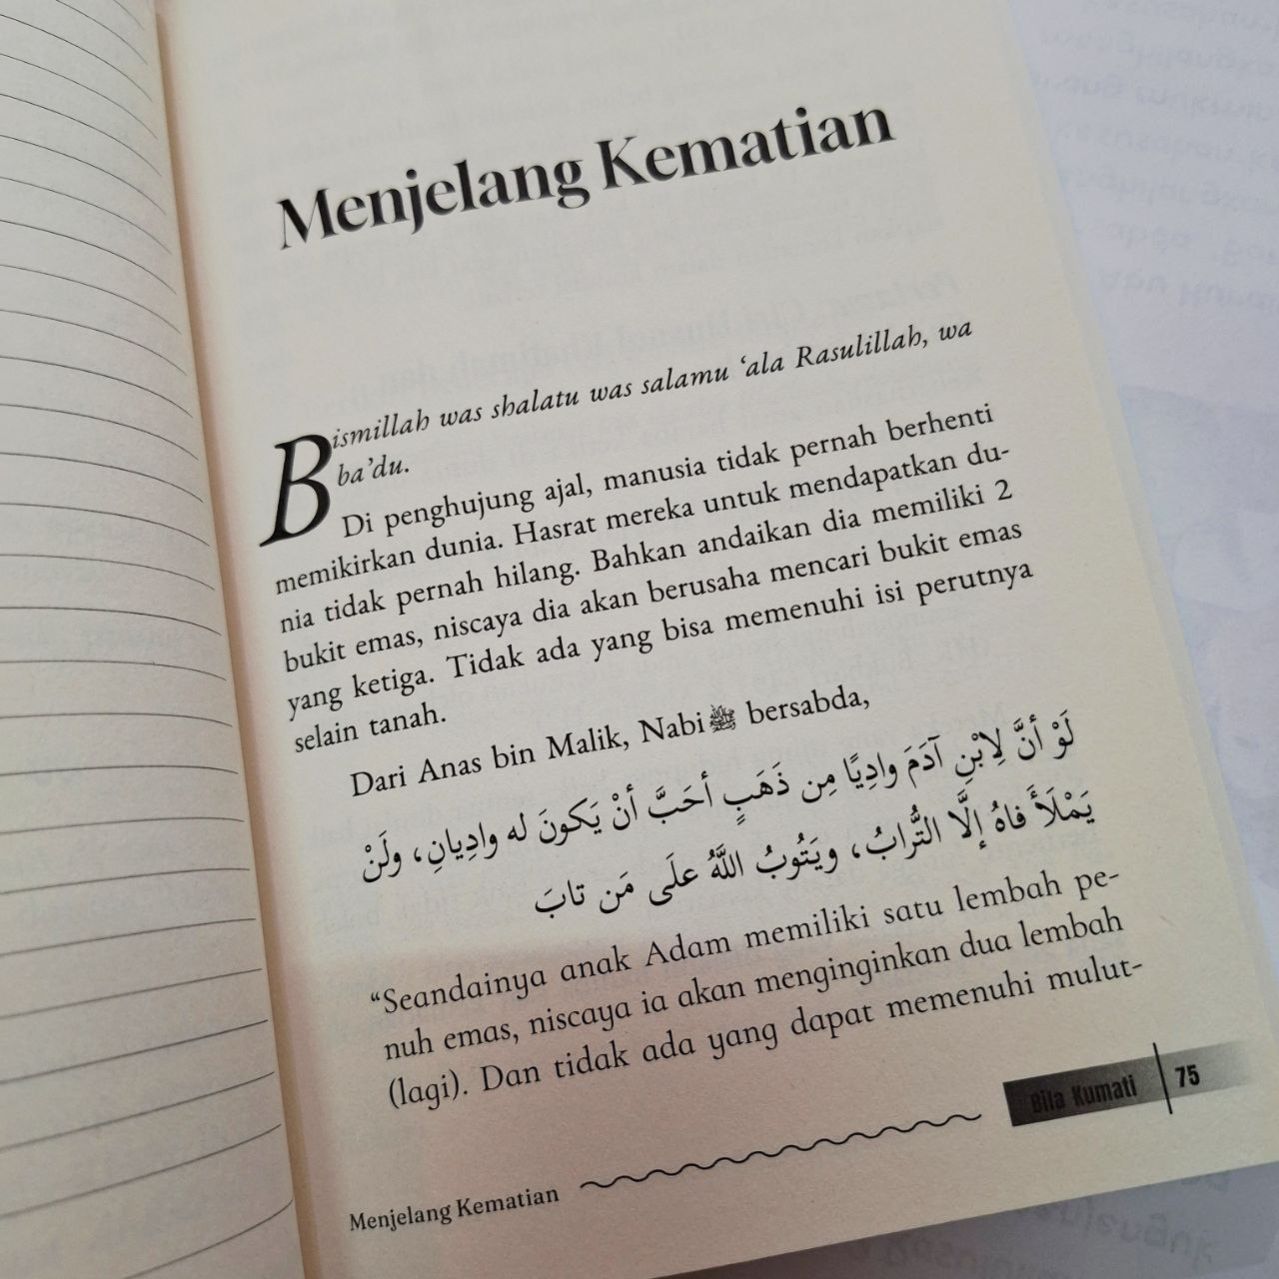 Menjelang Kematian
Bismillah was shalatu was salamu ‘ala Rasulillah, wa
ba’du.
Di penghujung ajal, manusia tidak pernah berhenti
memikirkan dunia. Hasrat mereka untuk mendapatkan du-
nia tidak pernah hilang. Bahkan andaikan dia memiliki 2
bukit emas, niscaya dia akan berusaha mencari bukit emas
yang ketiga. Tidak ada yang bisa memenuhi isi perutnya
selain tanah.
Dari Anas bin Malik, Nabi ﷺ bersabda,
لَوْ أنَّ لِابْنِ آدَمَ وادِيًا مِن ذَهَبٍ أحَبَّ أنْ يَكونَ له وادِيانِ، ولَنْ
يَمْلَأَ فاهُ إلَّا التُّرابُ، ويَتُوبُ اللَّهُ علَى مَن تابَ
“Seandainya anak Adam memiliki satu lembah pe-
nuh emas, niscaya ia akan menginginkan dua lembah
(lagi). Dan tidak ada yang dapat memenuhi mulut-
Bila Kumati 75
Menjelang Kematian